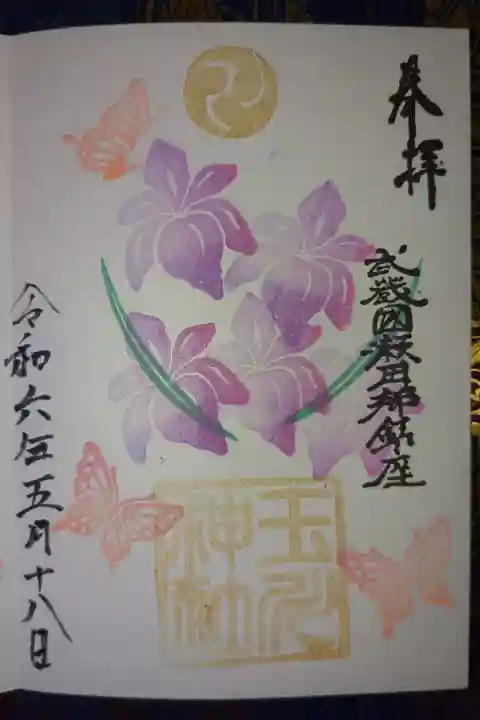 奉拝
武蔵國荏原郡鎮座
玉川
神社
令和六年五月十八日